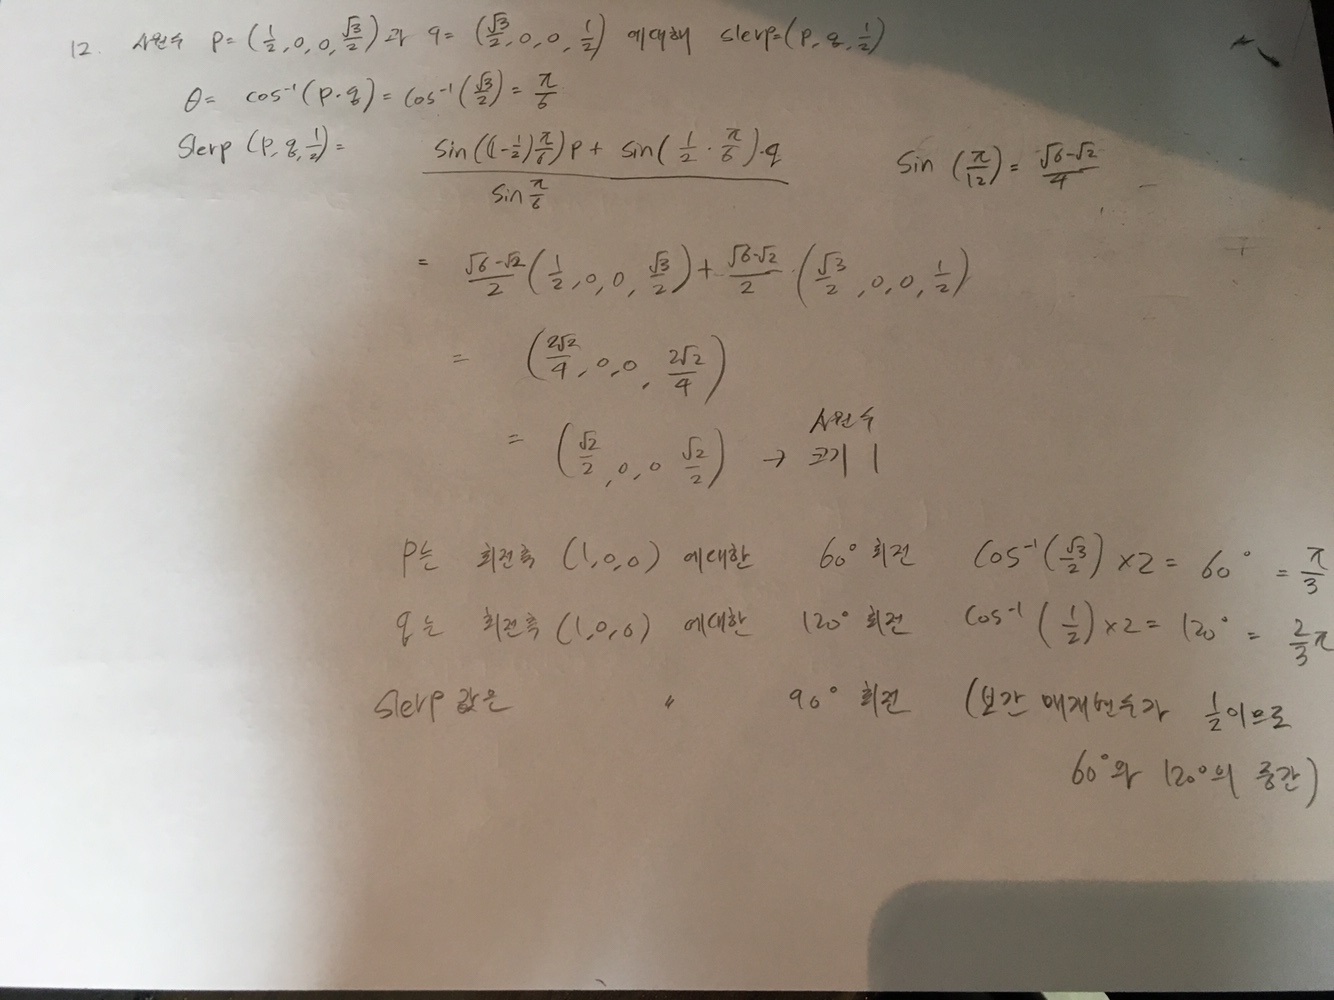 12. 사원수 P=(1/2,0,0,√3/2)과 q=(√3/2,0,0,1/2) 에대해 slerp=(P,q,1/2)
θ= cos⁻¹(P·q)=cos⁻¹(√3/2)=π/6
Slerp (P,q,1/2)= (sin((1-1/2)π/6)P + sin(1/2·π/6)·q) / sin π/6    Sin(π/12)=(√6-√2)/4
= (√6-√2)/2 (1/2,0,0,√3/2)+(√6-√2)/2·(√3/2,0,0,1/2)
= (2√2/4,0,0,2√2/4)
= (√2/2,0,0 √2/2) → 사원수 크기 1
P는 회전축 (1,0,0) 에대한 60° 회전 Cos⁻¹(√3/2)×2=60°=π/3
q는 회전축 (1,0,0) 에대한 120° 회전 Cos⁻¹(1/2)×2=120°=2/3π
Slerp 값은 〃 90° 회전 (보간 매개변수가 1/2이므로
60°와 120°의 중간)